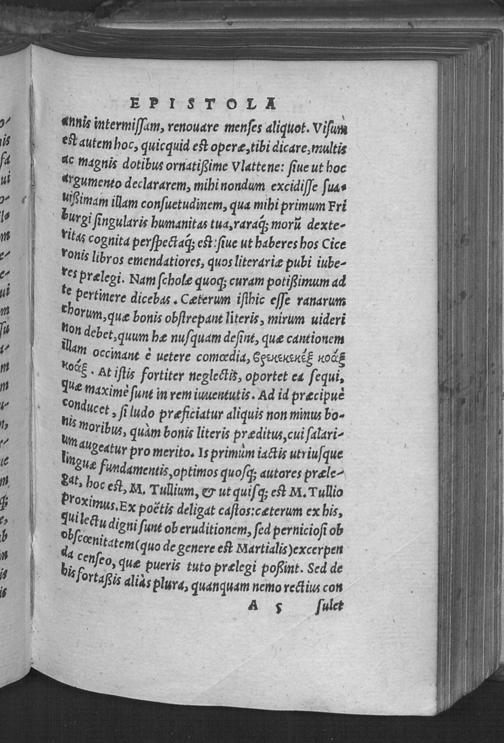 EPISTOLA
annis intermissam, renouare menses aliquot. Visum̀
est autem hoc, quicquid est operæ, tibi dicare, multis
ac magnis dotibus ornatißime Vlattene: siue ut hoc
argumento declararem, mihi nondum excidisse sua-
uißimam illam consuetudinem, qua mihi primum Fri
burgi singularis humanitas tua, raraq; morũ dexte-
ritas cognita perspectaq; est: siue ut haberes hos Cice
ronis libros emendatiores, quos literariæ pubi iube-
res prælegi. Nam scholæ quoq; curam potißimum ad
te pertinere dicebas. Cæterum isthic esse ranarum
chorum, quæ bonis obstrepant literis, mirum uideri
non debet, quum hæ nusquam desint, quæ cantionem
illam occinant è uetere comœdia, βρεκεκεκὲξ κοὰξ
κοὰξ. At istis fortiter neglectis, oportet ea sequi,
quæ maximè sunt in rem iuuentutis. Ad id præcipuè
conducet, si ludo præficiatur aliquis non minus bo-
nis moribus, quàm bonis literis præditus, cui salari-
um augeatur pro merito. Is primùm iactis utriusque
linguæ fundamentis, optimos quosq; autores præle-
gat, hoc est, M. Tullium, & ut quisq; est M. Tullio
proximus. Ex poëtis deligat castos: cæterum ex his,
qui lectu digni sunt ob eruditionem, sed perniciosi ob
obscœnitatem (quo de genere est Martialis) excerpen
da censeo, quæ pueris tuto prælegi poßint. Sed de
his fortaßis aliàs plura, quanquam nemo rectius con
A 5 sulet